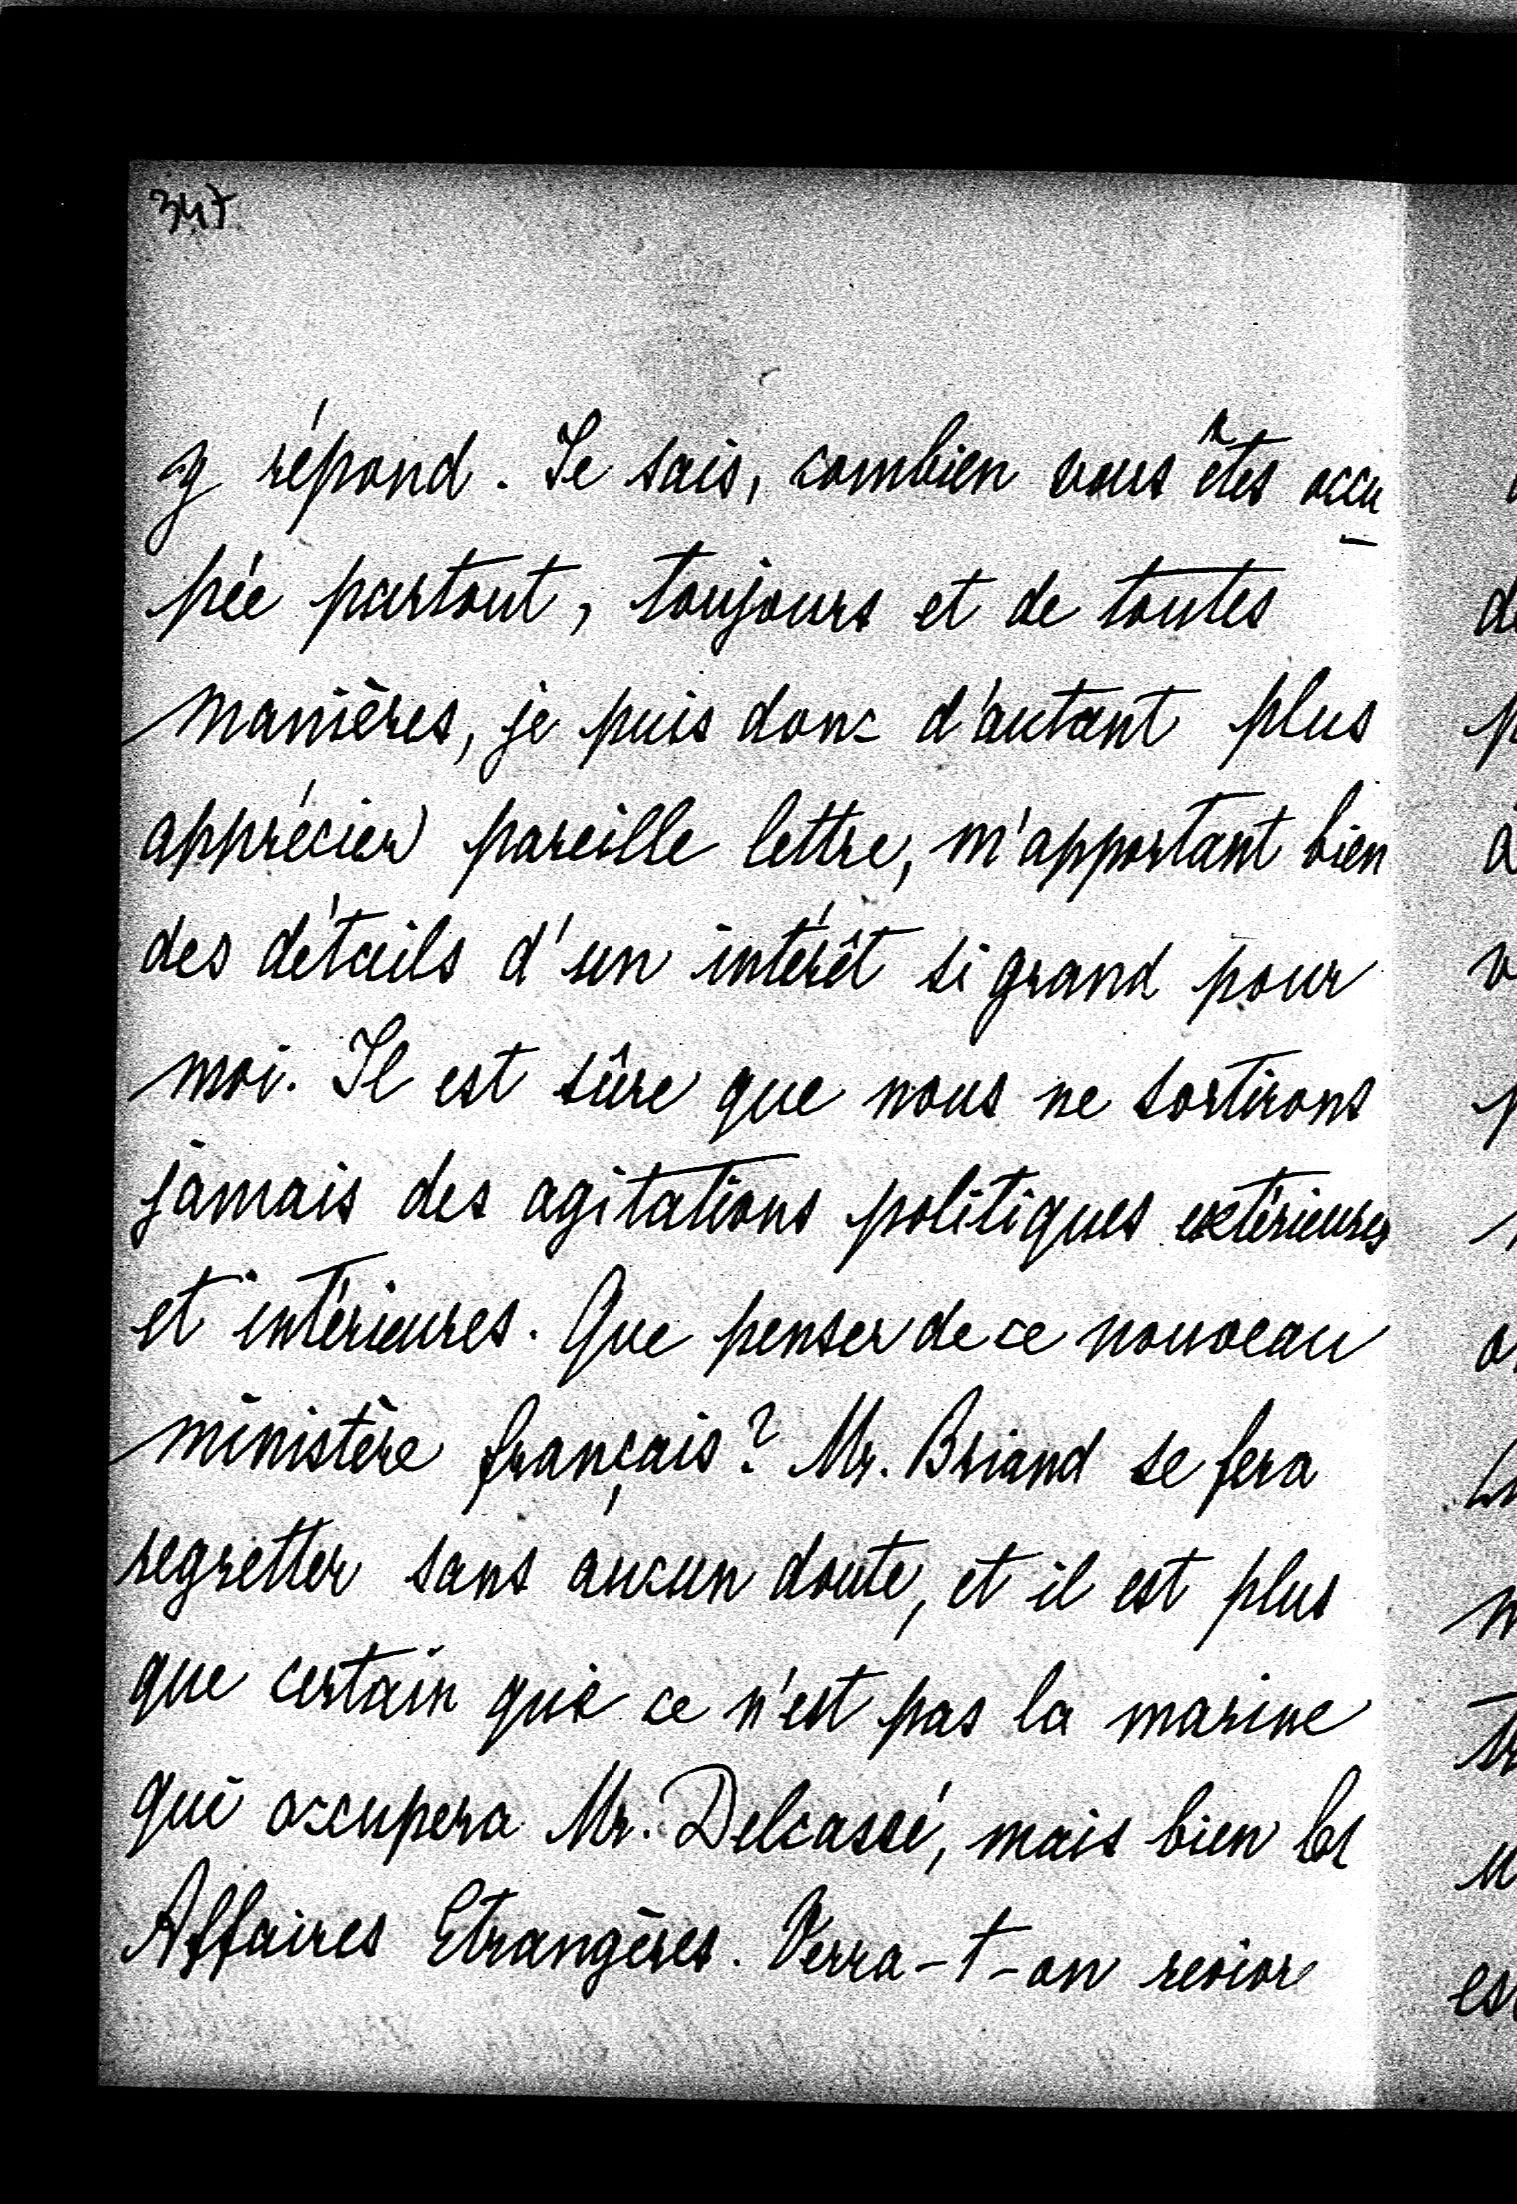 347
y répond. Je sais, combien vous êtes occu
pée partout, toujours et de toutes
manières, je puis donc d'autant plus
apprécier pareille lettre, m'apportant bien
des détails d'un intérêt si grand pour
moi. Il est sûre que nous ne sortirons
jamais des agitations politiques extérieures
et intérieures. Que penser de ce nouveau
ministère français? Mr. Briand se fera
regretter sans aucun doute, et il est plus
que certain que ce n'est pas la marine
qui occupera Mr. Delcassé, mais bien les
Affaires Etrangères. Verra-t-on revoir